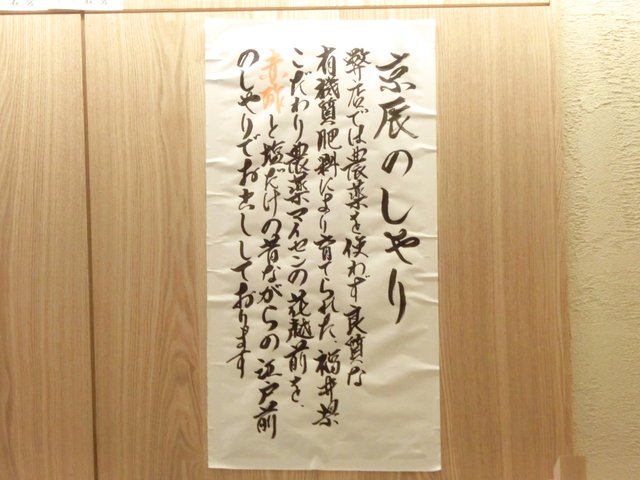 京辰のしゃり
弊店では農薬を使わず良質な
有機質肥料により育てられた、福井県
こだわり農薬マイセンの花越前を、
赤酢と塩だけの昔ながらの江戸前
のしゃりでお出ししております